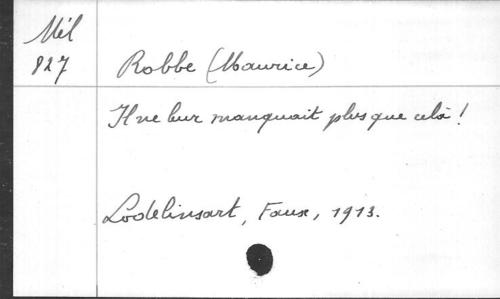 Mél
827
Robbe (Maurice)
Il ne leur manquait plus que cela !
Lodelinsart, Faux, 1913.